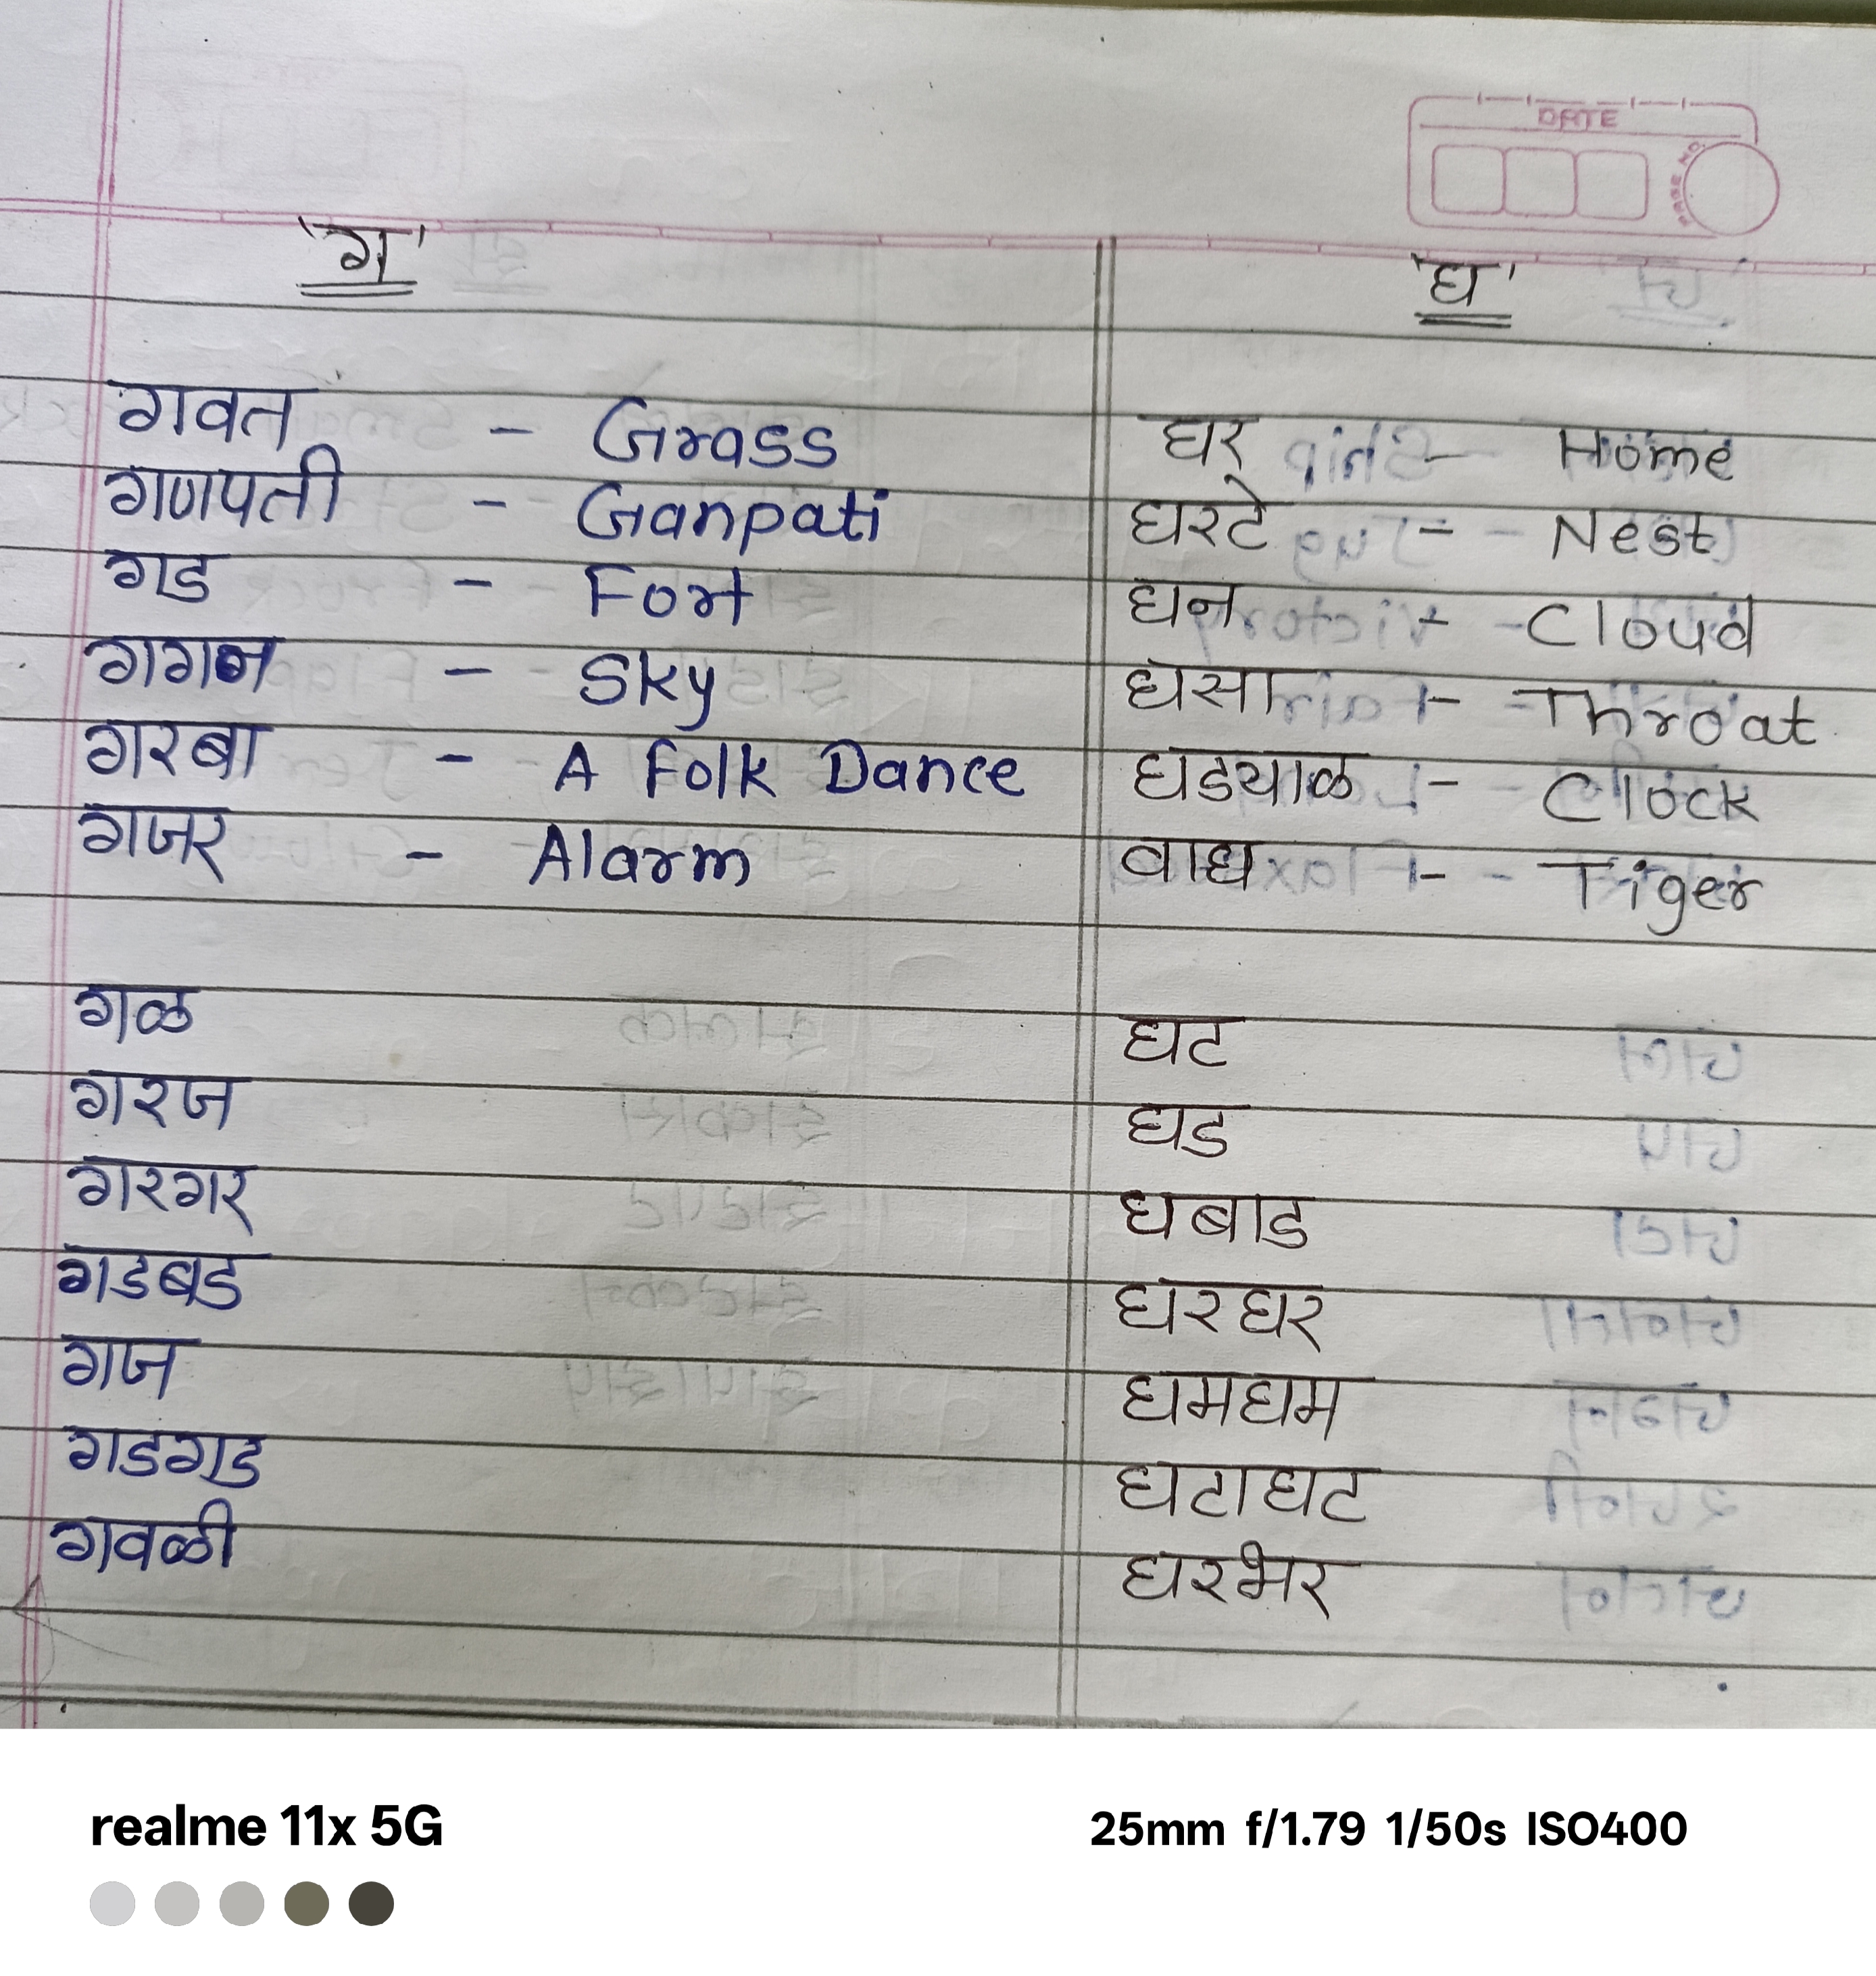 DATE
PAGE NO.
'ग'
गवत - Grass
गणपती - Ganpati
गड - Fort
गगन - Sky
गरबा - A Folk Dance
गजर - Alarm
गळ
गरज
गरगर
गडबड
गज
गडगड
गवळी
'घ'
घर - Home
घरटे - Nest
घन - Cloud
घसा - Throat
घड्याळ - Clock
वाघ - Tiger
घट
घड
घबाड
घरघर
घमघम
घटाघट
घरभर
realme 11x 5G
25mm f/1.79 1/50s ISO400